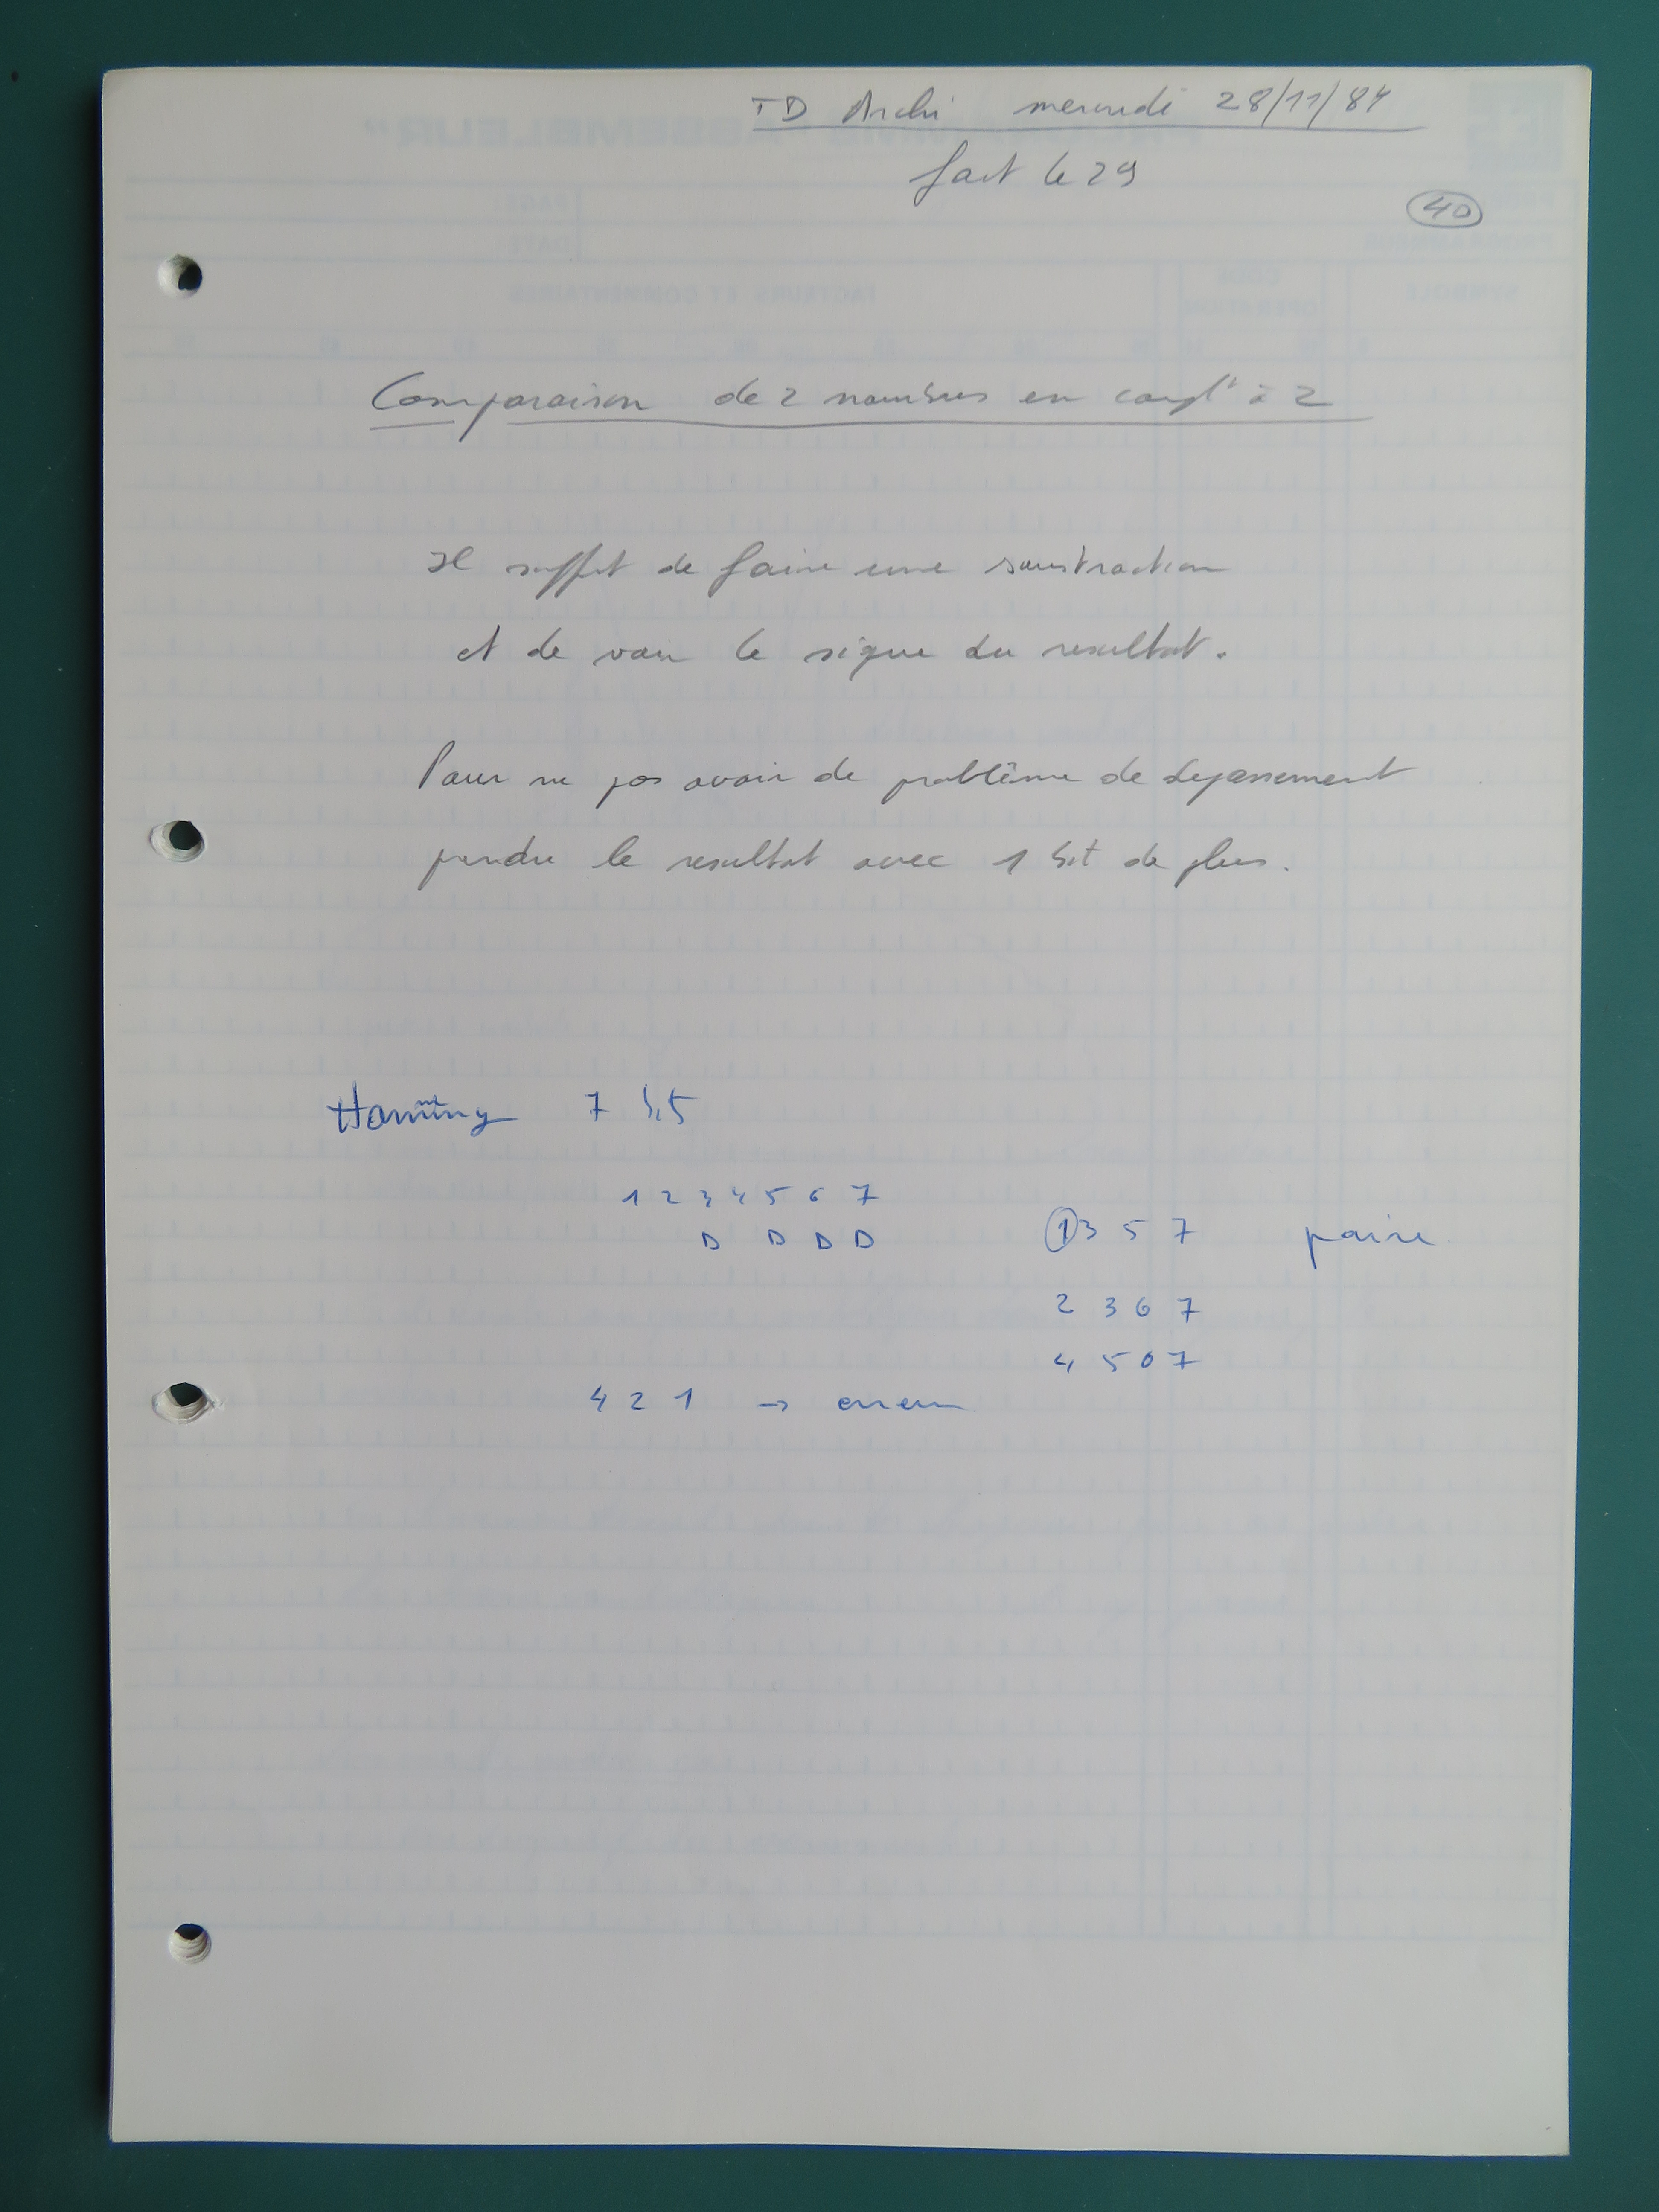 TD Archi mercredi 28/11/84
fait le 29
40
Comparaison de 2 nombres en compl^t à 2
Il suffit de faire une soustraction
et de voir le signe du resultat.
Pour ne pas avoir de problème de depassement
prendre le resultat avec 1 bit de plus.
Hamming 7 bits
1 2 3 4 5 6 7
D D D D
1 3 5 7 paire
2 3 6 7
4 5 6 7
4 2 1 → erreur